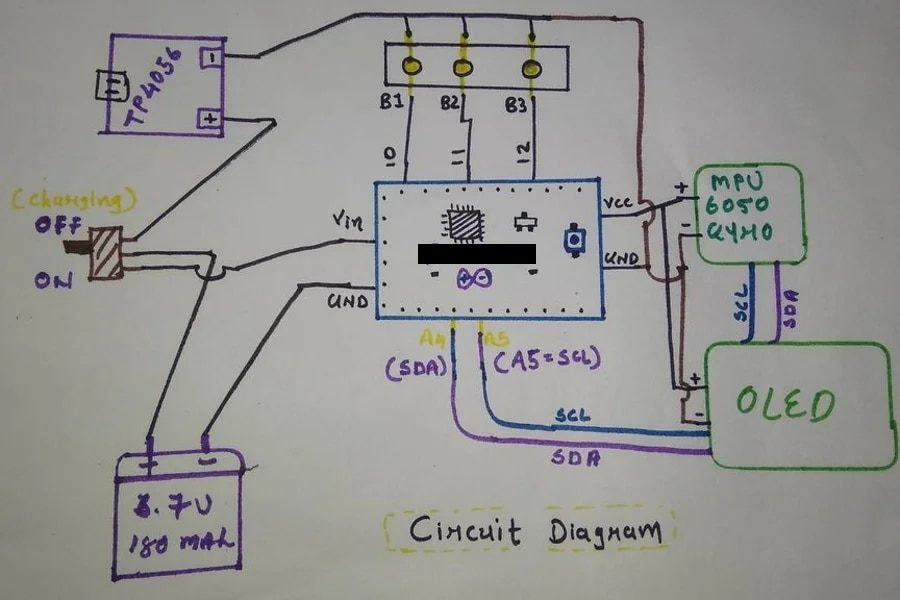 -
TP4056
+
B1 B2 B3
10 11 12
(charging)
OFF
ON
Vin
GND
VCC
GND
+
-
MPU
6050
GYRO
SCL
SDA
A4 A5
(SDA) (A5=SCL)
SCL
SDA
+
-
OLED
+ -
3.7V
180 mAh
Circuit Diagram